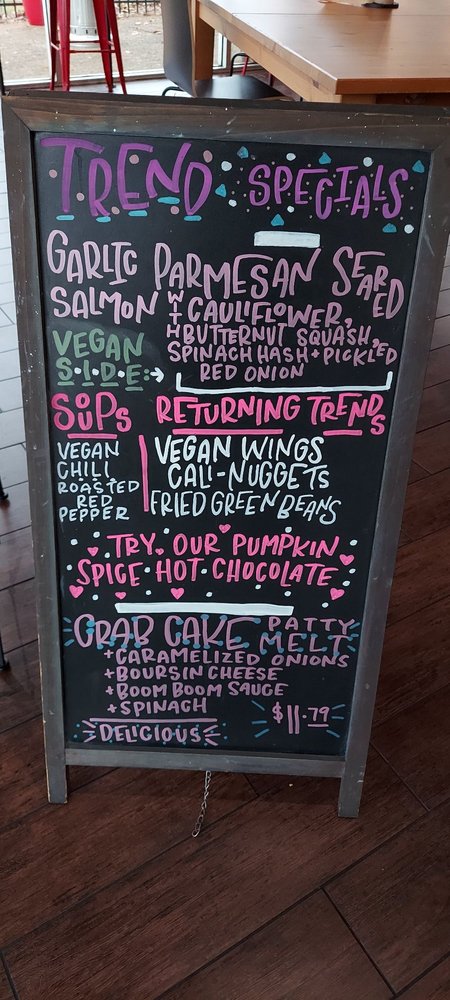 TREND SPECIALS
GARLIC PARMESAN SEARED
SALMON WITH CAULIFLOWER,
BUTTERNUT SQUASH,
SPINACH HASH + PICKLED
RED ONION
VEGAN
S.I.D.E:→
SOUPS
VEGAN
CHILI
ROASTED
RED
PEPPER
RETURNING TRENDS
VEGAN WINGS
CALI-NUGGETS
FRIED GREEN BEANS
TRY OUR PUMPKIN
SPICE HOT CHOCOLATE
CRAB CAKE PATTY
MELT
+CARAMELIZED ONIONS
+BOURSIN CHEESE
+BOOM BOOM SAUCE
+SPINACH
$11.79
DELICIOUS